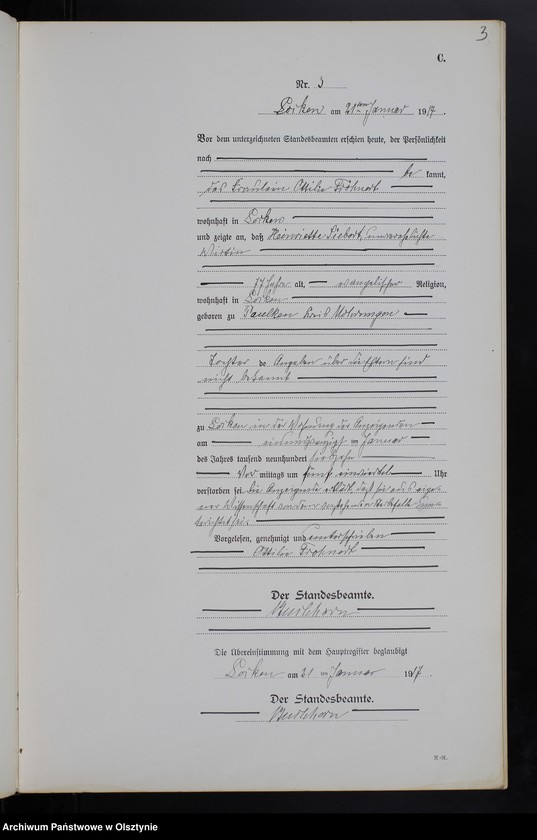 3
C.
Nr. 3
Lorken am 21ten Januar 1917.
Vor dem unterzeichneten Standesbeamten erschien heute, der Persönlichkeit
nach
be kannt,
das Fräulein Ottilie Frohnert
wohnhaft in Lorken
und zeigte an, daß Henriette Siebert, unverehelichte
Wirtin
77 Jahre alt, evangelischer Religion,
wohnhaft in Lorken
geboren zu Paulken Kreis Mohrungen
Tochter Angaben über die Eltern sind
nicht bekannt
zu Lorken in der Wohnung der Anzeigenden
am einundzwanzigsten Januar
des Jahres tausend neunhundert siebzehn
Vor mittags um fünf einviertel Uhr
verstorben sei. Die Anzeigende erklärt, daß sie aus eige-
ner Wissenschaft von dem Sterbefalle unter-
richtet sei.
Vorgelesen, genehmigt und unterschrieben
Ottilie Frohnert
Der Standesbeamte.
Die Übereinstimmung mit dem Hauptregister beglaubigt
Lorken am 21 ten Januar 1917.
Der Standesbeamte.
Archiwum Państwowe w Olsztynie